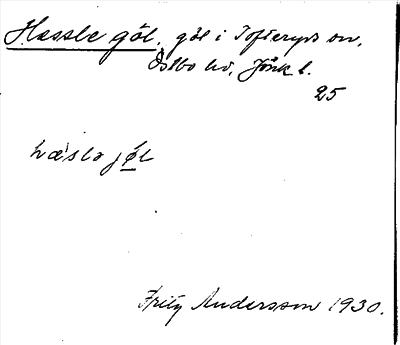 Hassle göl, göl i Tofteryds sn,
Östbo hd, Jönk l.
25
hàslə jø̀l
Fritz Andersson 1930.